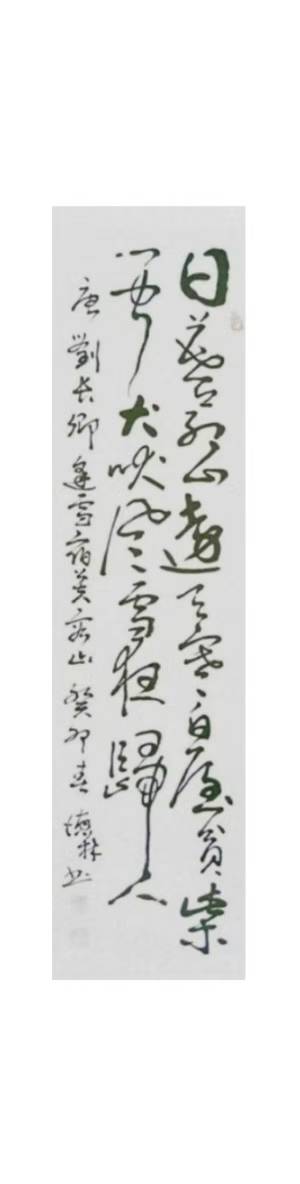 日暮蒼山遠天寒白屋貧柴
門聞犬吠風雪夜歸人
唐劉長卿逢雪宿芙蓉山癸卯春林書